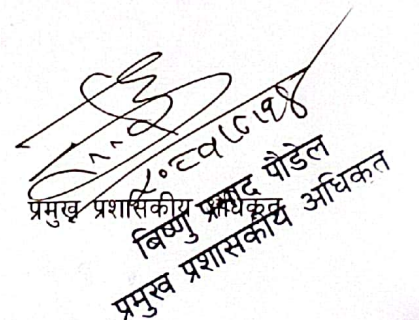 प्रमुख प्रशासकीय अधिकृत
बिष्णु प्रसाद पौडेल
प्रमुख प्रशासकीय अधिकृत